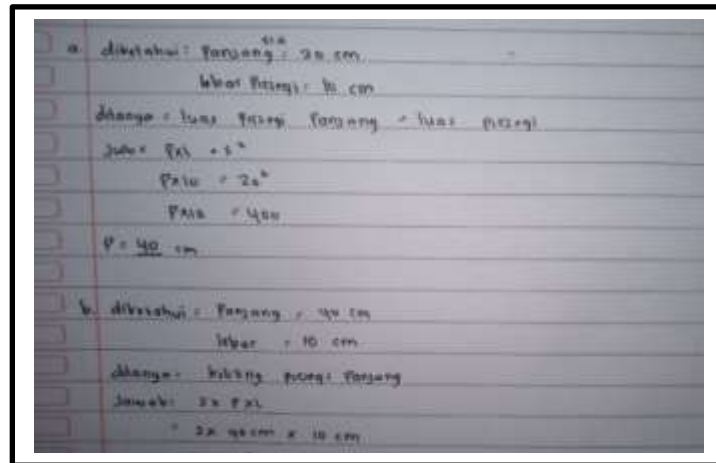 a. diketahui = Panjang sisi = 20 cm
lebar Persegi = 10 cm
ditanya = luas Persegi Panjang = luas persegi
Jwb = PxL = s²
Px10 = 20²
Px10 = 400
P = 40 cm
b. diketahui = Panjang = 40 cm
lebar = 10 cm
ditanya = keliling persegi Panjang
Jawab = 2x PxL
= 2x 40cm x 10 cm